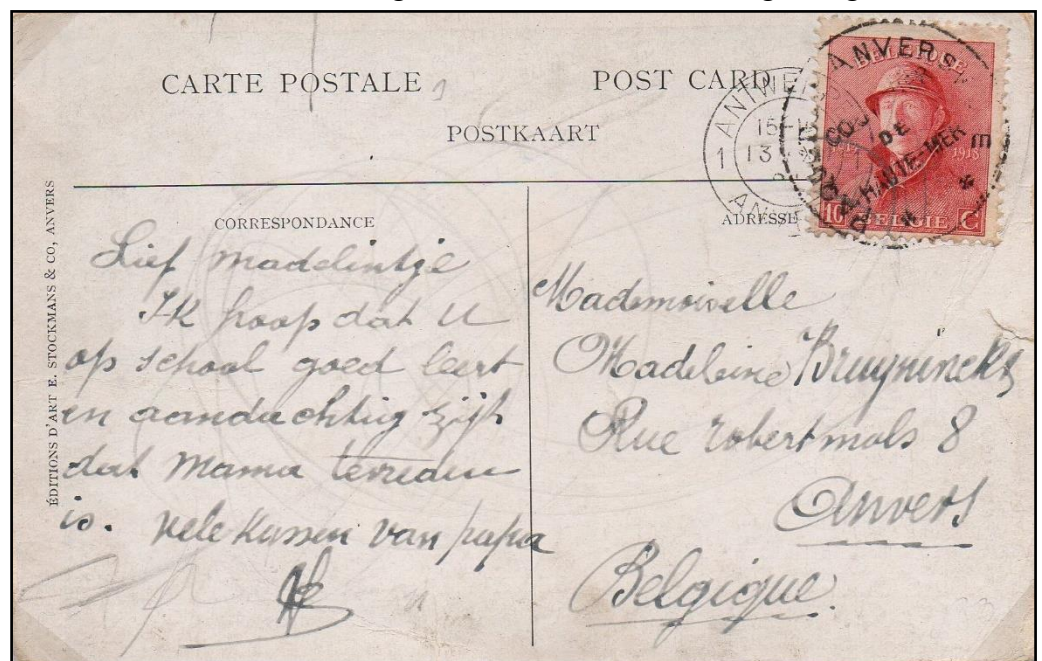 CARTE POSTALE
POST CARD
POSTKAART
ÉDITIONS D'ART E. STOCKMANS & CO, ANVERS
CORRESPONDANCE
Lief madelintje
Ik hoop dat U
op school goed leert
en aandachtig zijt
dat Mama tevreden
is. Vele Kussen van papa
ADRESSE
Mademoiselle
Madeleine Bruyninckx
Rue Robert mols 8
Anvers
Belgique
ANTWERPEN
1
15-
13
ANVERS
DE
HAUTE-MER
BELGIQUE
1918
10 BELGIE C